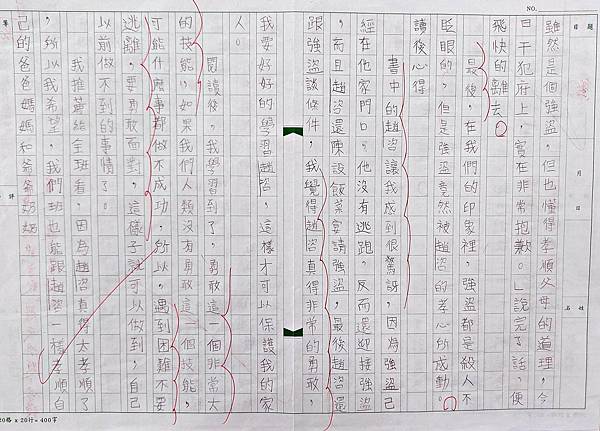 NO.
雖然是個強盜，但也懂得孝順父母的道理，今
日干犯府上，實在非常抱歉。」說完了話，便
飛快的離去。
最後，在我們的印象裡，強盜都是殺人不
眨眼的，但是強盜竟然被趙咨的孝心所感動。
讀後心得
書中的趙咨讓我感到很驚訝，因為強盜已
經在他家門口，他沒有逃跑，反而還迎接強盜
，而且趙咨還陳設飯菜宴請強盜，最後趙咨還
跟強盜談條件，我覺得趙咨真得非常的勇敢，
我要好好的學習趙咨，這樣才可以保護我的家
人。
閱讀後，我學習到了，勇敢這一個非常大
的技能，如果我們人類沒有勇敢這一個技能，
可能什麼事都做不成功，所以，遇到困難不要
逃離，要勇敢面對，這樣子就可以做到，自己
以前做不到的事情了。
我推薦給全班看，因為趙咨真得太孝順了
，所以我希望，我們班也能跟趙咨一樣孝順自
己的爸爸媽媽和爺爺奶奶
20格 x 20行 = 400字